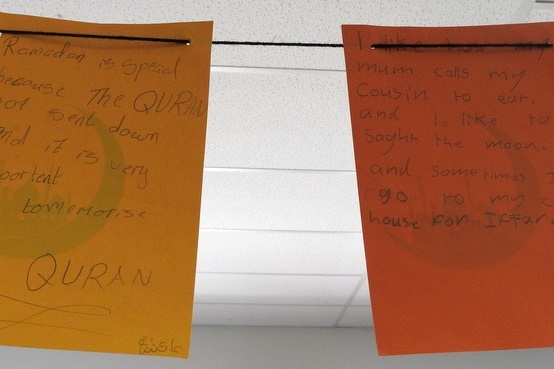 Ramadan is special
because The QURAN
sent down
it is very
to memorise
QURAN
I like how my
mum calls my
Cousin to eat.
and I like to
Saght the moon.
and Sometimes I
go to my
house For Iftar.